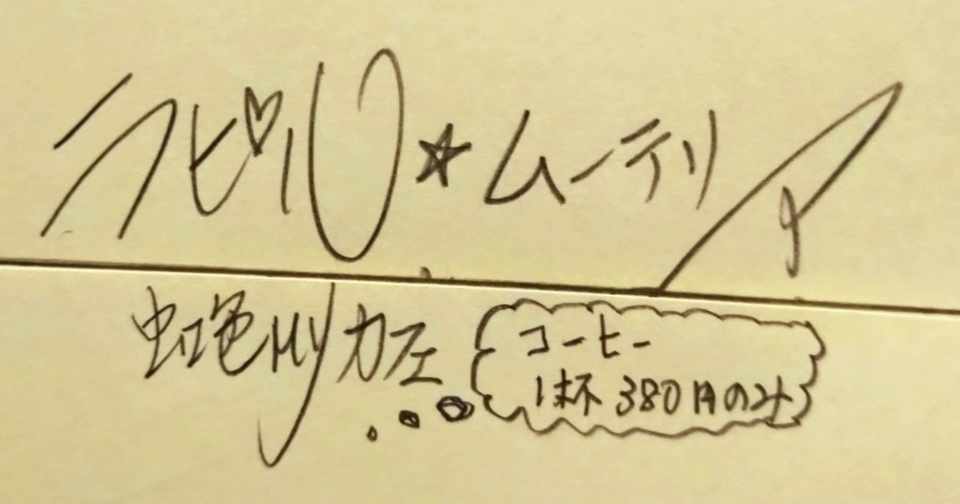 ラピ♡ル★ムーテリア
虹色MYカフェ
コーヒー
1杯 380円のみ